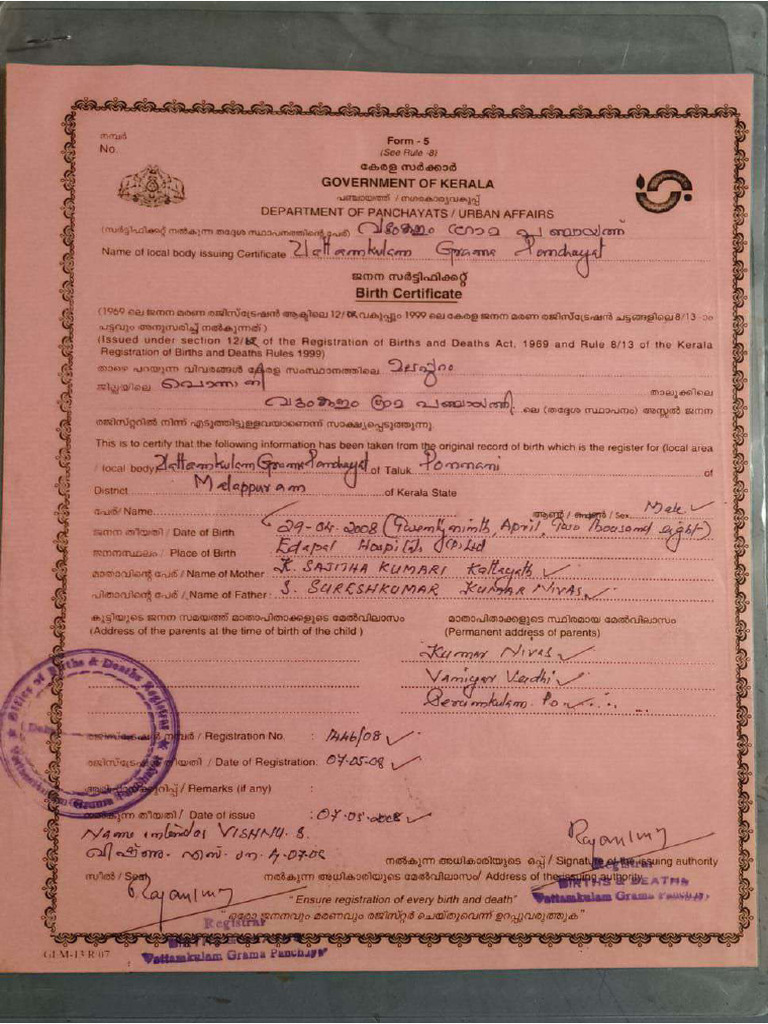 നമ്പർ
No.
Form - 5
(See Rule -8)
കേരള സർക്കാർ
GOVERNMENT OF KERALA
പഞ്ചായത്ത് / നഗരകാര്യവകുപ്പ്
DEPARTMENT OF PANCHAYATS / URBAN AFFAIRS
(സർട്ടിഫിക്കറ്റ് നൽകുന്ന തദ്ദേശ സ്ഥാപനത്തിന്റെ പേര്) വട്ടംകുളം ഗ്രാമ പഞ്ചായത്ത്
Name of local body issuing Certificate Vattamkulam Grama Panchayat
ജനന സർട്ടിഫിക്കറ്റ്
Birth Certificate
(1969 ലെ ജനന മരണ രജിസ്ട്രേഷൻ ആക്ടിലെ 12/ വകുപ്പും 1999 ലെ കേരള ജനന മരണ രജിസ്ട്രേഷൻ ചട്ടങ്ങളിലെ 8/13 -ാം
ചട്ടവും അനുസരിച്ച് നൽകുന്നത്)
(Issued under section 12/ of the Registration of Births and Deaths Act, 1969 and Rule 8/13 of the Kerala
Registration of Births and Deaths Rules 1999)
താഴെ പറയുന്ന വിവരങ്ങൾ കേരള സംസ്ഥാനത്തിലെ മലപ്പുറം
ജില്ലയിലെ പൊന്നാനി താലൂക്കിലെ
വട്ടംകുളം ഗ്രാമ പഞ്ചായത്ത് ലെ (തദ്ദേശ സ്ഥാപനം) അസ്സൽ ജനന
രജിസ്റ്ററിൽ നിന്ന് എടുത്തിട്ടുള്ളവയാണെന്ന് സാക്ഷ്യപ്പെടുത്തുന്നു.
This is to certify that the following information has been taken from the original record of birth which is the register for (local area
/ local body) Vattamkulam Grama Panchayat of Taluk Ponnani of
District Malappuram of Kerala State
പേര്/ Name ആൺ / പെൺ / Sex Male
ജനന തീയതി / Date of Birth 29-04-2008 (Twentyninth, April, Two thousand eight)
ജനനസ്ഥലം / Place of Birth Edapal Hospitals (P) Ltd
മാതാവിന്റെ പേര് / Name of Mother K. SAJITHA KUMARI Kattayath
പിതാവിന്റെ പേര് / Name of Father S. SURESHKUMAR KUMAR NIVAS
കുട്ടിയുടെ ജനന സമയത്ത് മാതാപിതാക്കളുടെ മേൽവിലാസം
(Address of the parents at the time of birth of the child )
മാതാപിതാക്കളുടെ സ്ഥിരമായ മേൽവിലാസം
(Permanent address of parents)
Kumar Nivas
Vaniyar
Perumkulam. Po
രജിസ്ട്രേഷൻ നമ്പർ / Registration No. : 1446/08
രജിസ്ട്രേഷൻ തീയതി / Date of Registration: 07-05-08
/ Remarks (if any) :
നൽകുന്ന തീയതി/ Date of issue : 07-05-2008
Name VISHNU. S.
വിഷ്ണു. എസ്.
Rajani
നൽകുന്ന അധികാരിയുടെ ഒപ്പ് / Signature of the issuing authority
Registrar
സീൽ / Seal നൽകുന്ന അധികാരിയുടെ മേൽവിലാസം/ Address of the issuing authority
BIRTHS & DEATHS
Vattamkulam Grama Panchayat
Rajani
"Ensure registration of every birth and death"
"ഓരോ ജനനവും മരണവും രജിസ്റ്റർ ചെയ്തുവെന്ന് ഉറപ്പുവരുത്തുക"
Registrar
Vattamkulam Grama Panchayat
Office of Births & Deaths Registrar
Vattamkulam Grama Panchayat